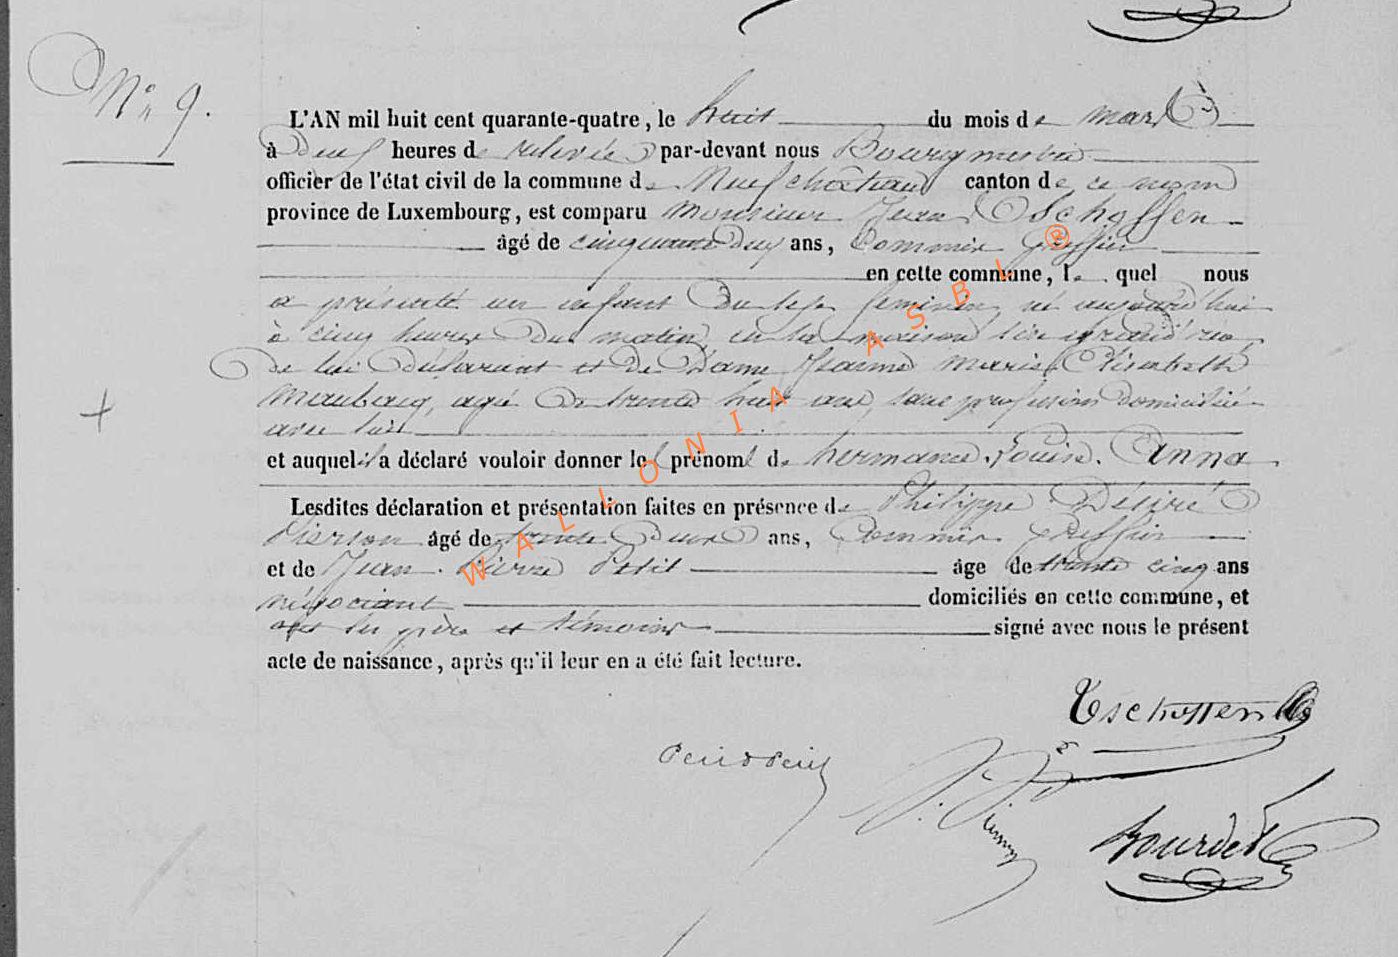 N° 9.
L'AN mil huit cent quarante-quatre, le huit du mois de mars
à deux heures de relevée par-devant nous Bourgmestre
officier de l'état civil de la commune de Neufchâteau canton de ce nom
province de Luxembourg, est comparu Monsieur Jean Tschoffen
âgé de cinquante deux ans, Commis Greffier
en cette commune, le quel nous
a présenté un enfant du sexe feminin, né aujourd'hui
à cinq heures du matin, en sa maison sise grand'rue,
de lui déclarant et de Dame Jeanne Marie Elisabeth
agée de trente huit ans, sans profession domiciliée
avec lui
et auquel il a déclaré vouloir donner les prénoms de hermance. Louise. Anna
Lesdites déclaration et présentation faites en présence de Philippe Désiré
Pierson âgé de trente deux ans, Commis Greffier
et de Jean. Pierre Petit âgé de trente cinq ans
négociant domiciliés en cette commune, et
ont les père et témoins signé avec nous le présent
acte de naissance, après qu'il leur en a été fait lecture.
Tschoffen
Bourdet
WALLONIA ASBL ®